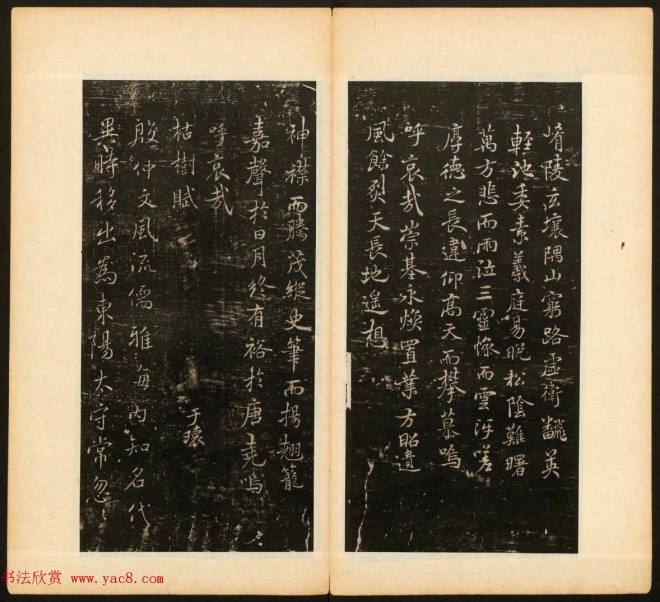 崤陵玄壤隅山窮路虛衛翻英
軽池委素羲庭易晚松陰難曙
萬方悲而雨泣三靈慘而雲沍嗟
厚德之長違仰高天而攀慕嗚
呼哀哉崇基永煥置業方昭遺
風餘烈天長地遥想
神襟而騰茂縱史筆而揚翹籠
嘉聲於日月終有裕於唐堯嗚
呼哀哉
枯樹賦
殷仲文風流儒雅海內知名代
異時移出為東陽太守常忽〻
书法欣赏 www.yac8.com